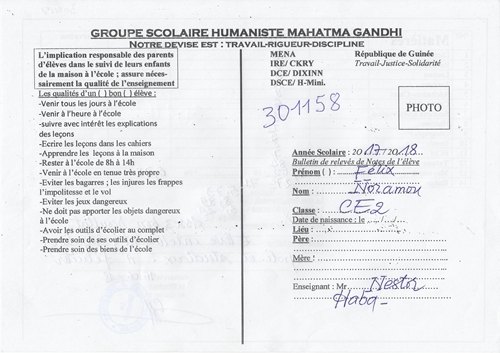 GROUPE SCOLAIRE HUMANISTE MAHATMA GANDHI
NOTRE DEVISE EST : TRAVAIL-RIGUEUR-DISCIPLINE
L'implication responsable des parents
d'élèves dans le suivi de leurs enfants
de la maison à l'école ; assure néces-
sairement la qualité de l'enseignement
Les qualités d'un ( ) bon ( ) élève :
-Venir tous les jours à l'école
-Venir à l'heure à l'école
-suivre avec intérêt les explications
des leçons
-Ecrire les leçons dans les cahiers
-Apprendre les leçons à la maison
-Rester à l'école de 8h à 14h
-Venir à l'école en tenue très propre
-Eviter les bagarres ; les injures les frappes
l'impolitesse et le vol
-Eviter les jeux dangereux
-Ne doit pas apporter les objets dangereux
à l'école
-Avoir les outils d'écolier au complet
-Prendre soin de ses outils d'écolier
-Prendre soin des biens de l'école
MENA
IRE/ CKRY
DCE/ DIXINN
DSCE/ H-Mini.
République de Guinée
Travail-Justice-Solidarité
301158
PHOTO
Année Scolaire : 2017-2018
Bulletin de relevés de Notes de l'élève
Prénom ( ) : Félix
Nom : Noramou
Classe : CE2
Date de naissance : le
Lieu :
Père :
Mère :
Enseignant : Mr Nestor
Haba